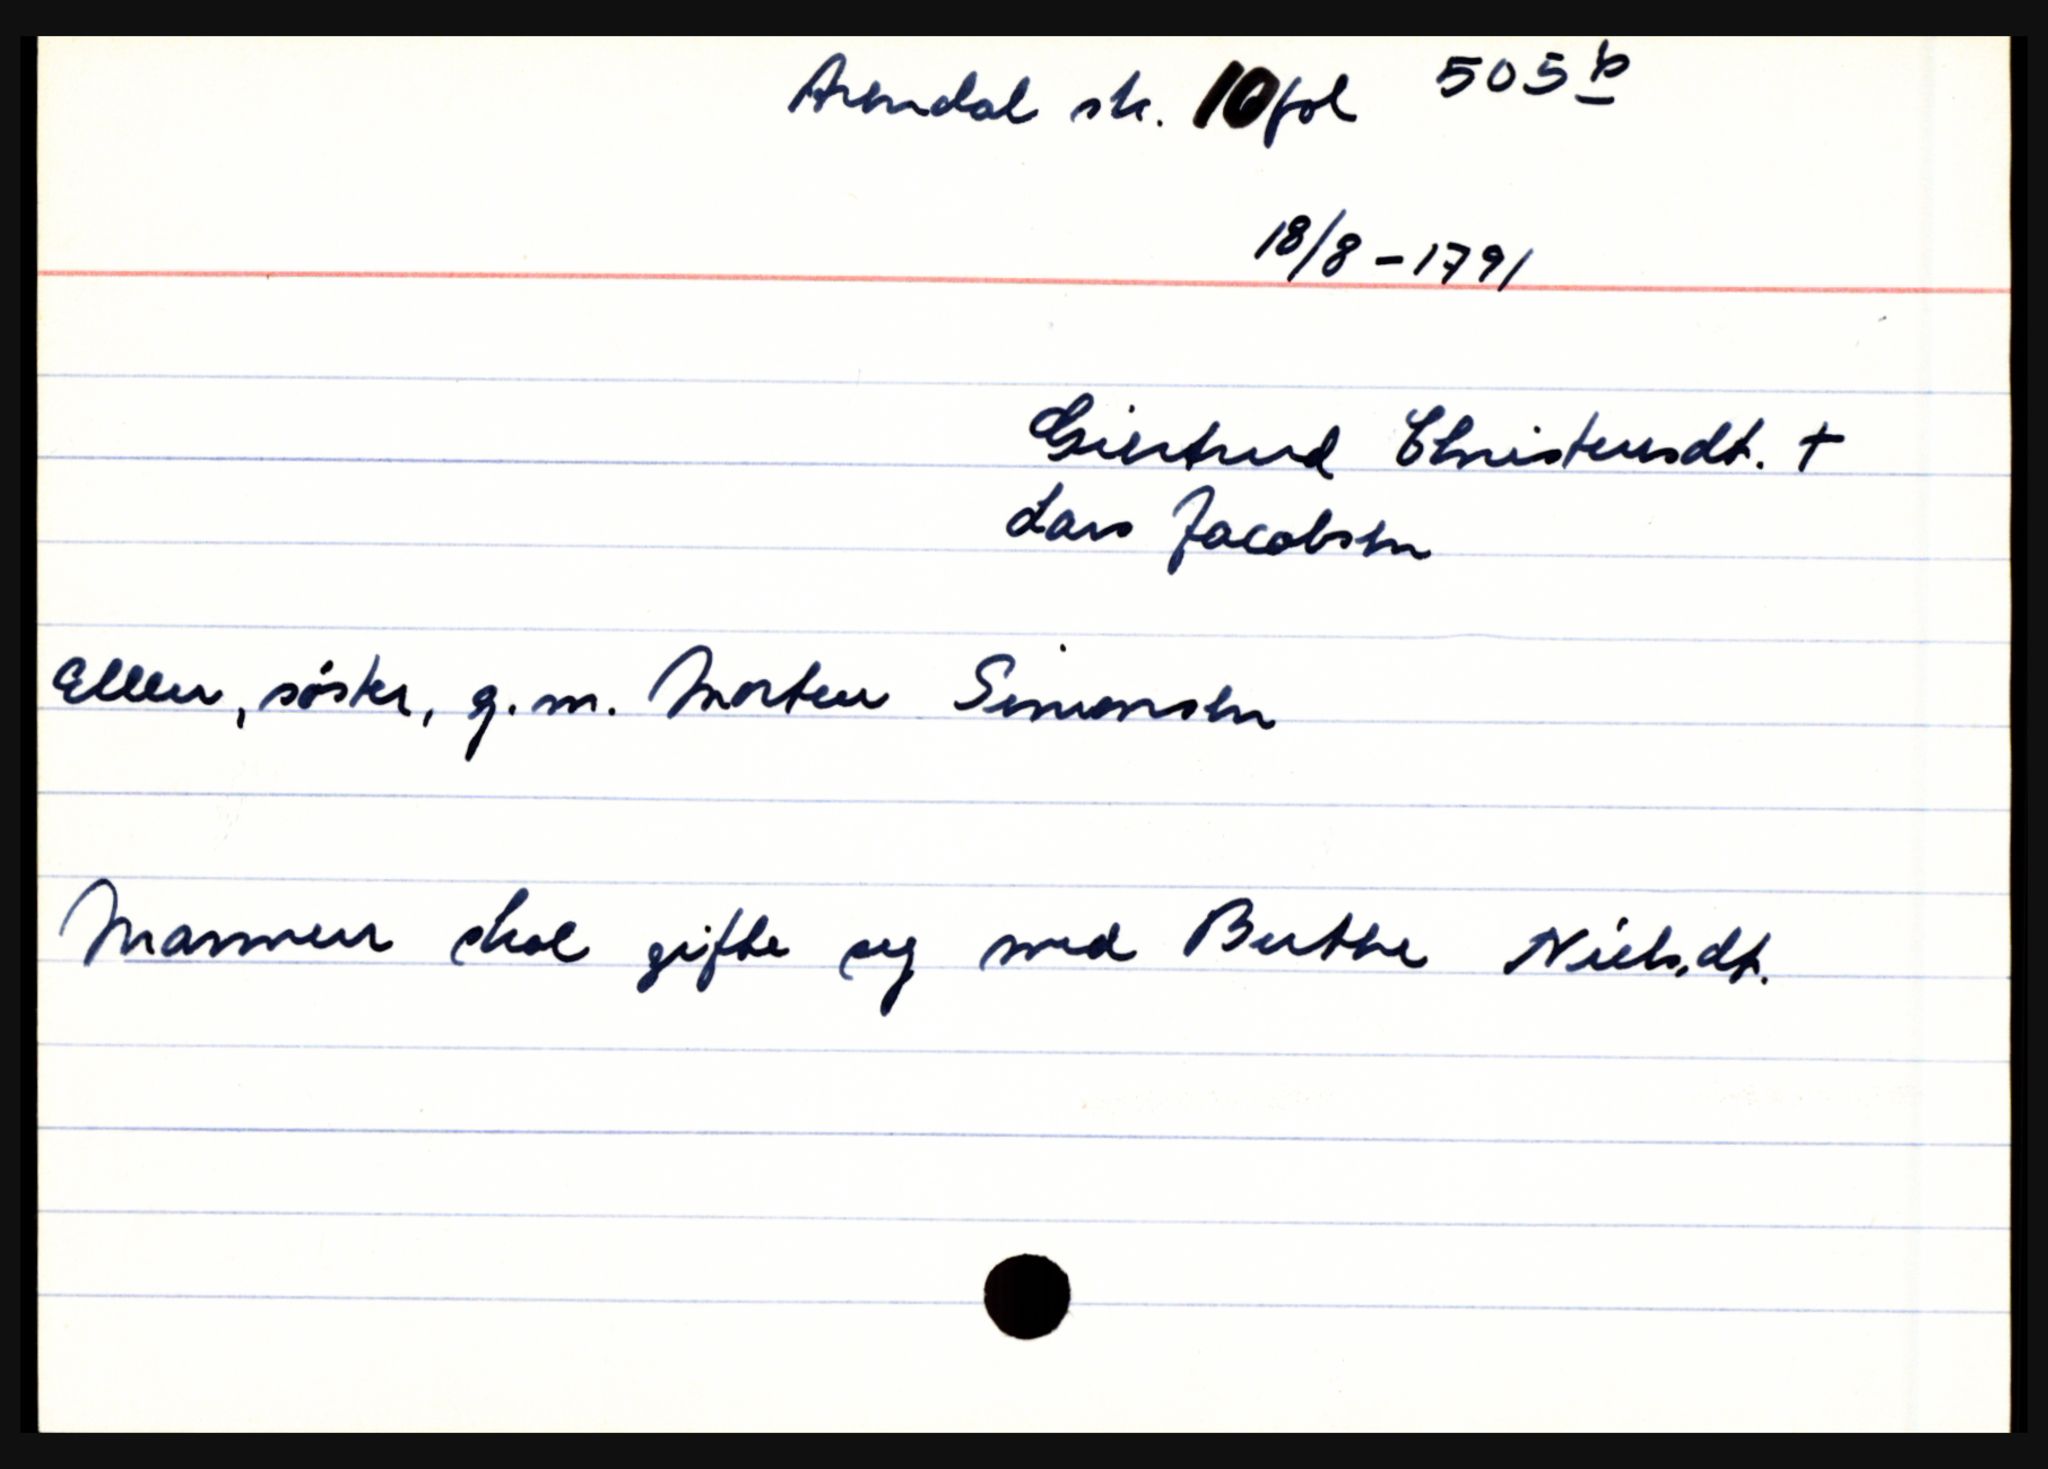 Arendal sk. 10 fol 505 b
18/8 - 1791
Giertrud Christensdt. +
Lars Jacobsen
Ellen, søster, g.m. Morten Simonsen
Mannen skal gifte seg med Berthe Nielsdt.